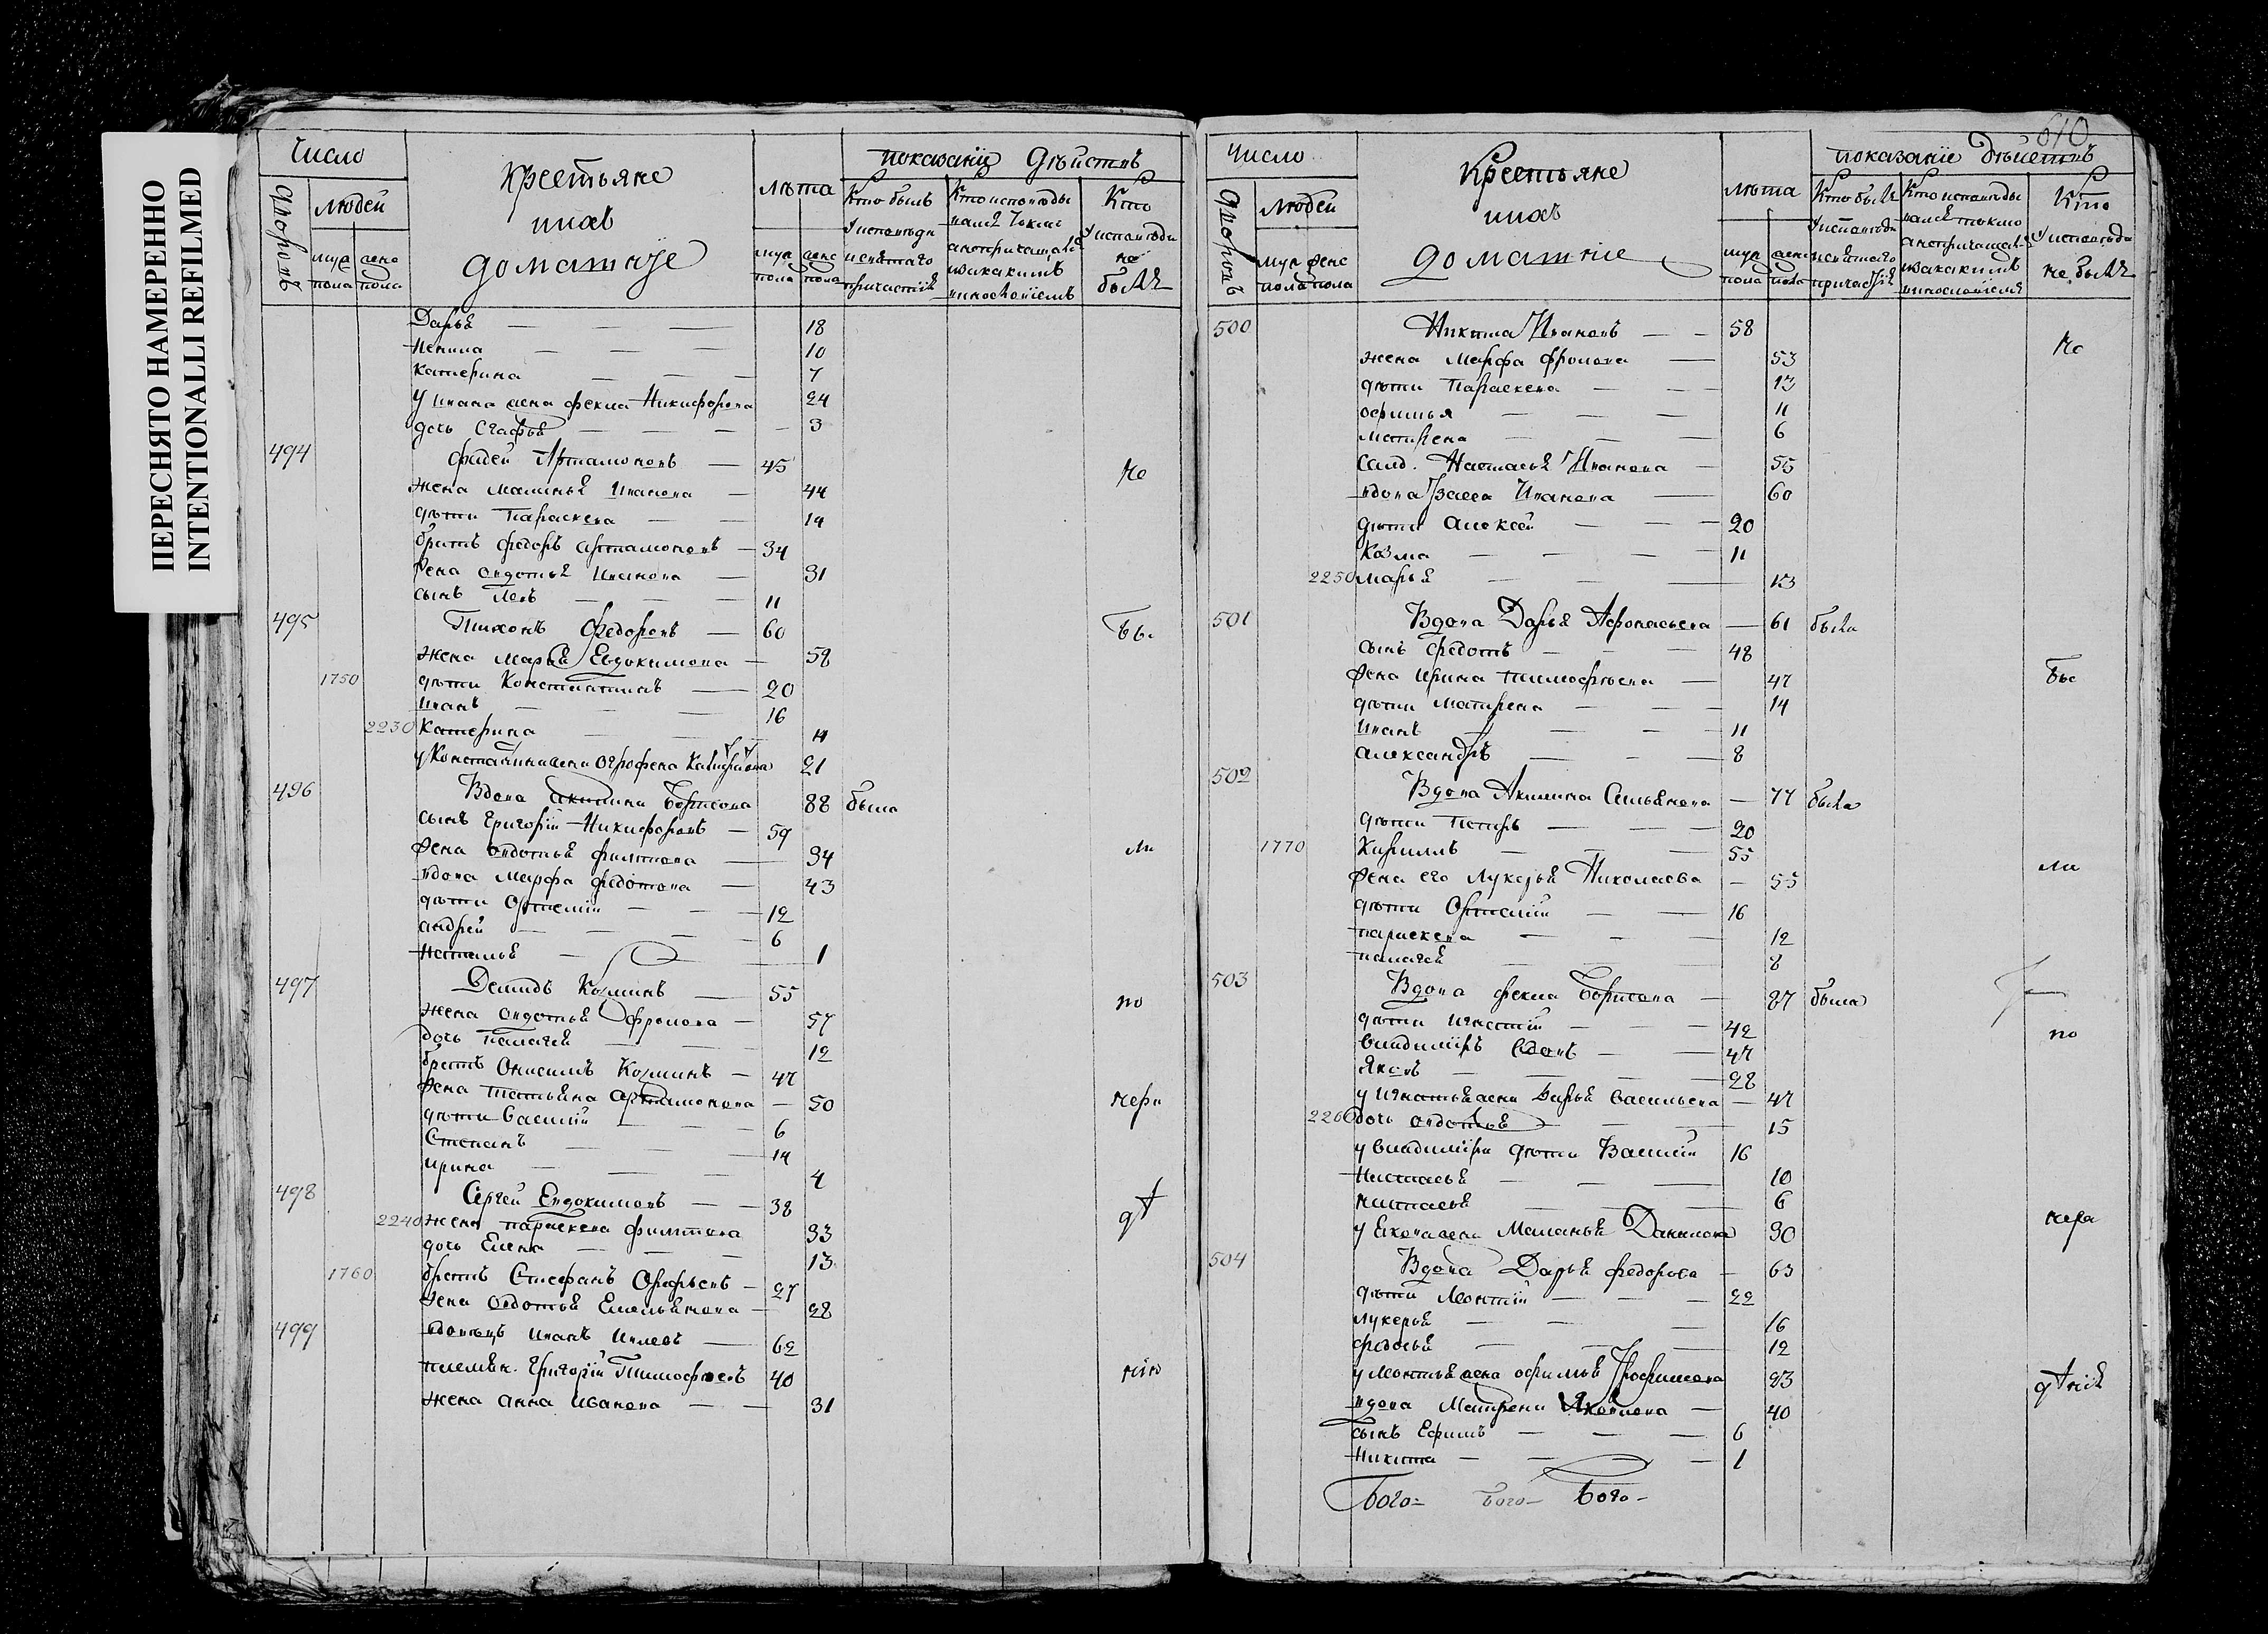 ПЕРЕСНЯТО НАМЕРЕННО
INTENTIONALLI REFILMED
Число
Крестьяне
ихъ
домашніе
лѣта
показаніе дѣйствъ
дворовъ
людей
муж пола
женс пола
муж пола
женс пола
Кто былъ
у исповѣди
и святаго
причастія
Кто исповѣды
вался токмо
а не причащался
и за какимъ
винословіемъ
Кто
у исповѣди
не
былъ
Дарья — 18
Ненила — 10
Катерина — 7
у Ивана жена Фекла Никифорова 24
дочь Агафья — 3
494 Фадей Артамоновъ — 45 не
жена Маланья Иванова — 44
дѣти Параскева — 14
братъ Федоръ Артамоновъ — 34
жена Овдотья Иванова — 31
сынъ Левъ — 11
495 Тихонъ Федоровъ — 60 бы
жена Марья Евдокимова — 58
1750 дѣти Константинъ — 20
Иванъ — 16
2230 Катерина — 11
у Константина жена Огрофена 21
496 Вдова Акилина Борисова 88 была
сынъ Григорій Никифоровъ — 59
жена Овдотья Филипова — 34 ли
вдова Марфа Федотова — 43
дѣти Ортемій — 12
Андрей — 6
Наталья — 1
497 Демидъ Козминъ — 55 по
жена Овдотья Фролова — 57
дочь Палагея — 12
братъ Онисимъ Козминъ — 47
жена Татьяна Артамонова — 50 нера
дѣти Василій — 6
Степанъ — 14
Ирина — 4
498 Сергей Евдокимовъ — 38 д
2240 жена Параскева Филипова 33
дочь Елена — 13
1760 братъ Стефанъ — 27
жена Овдотья Емельянова — 28
499 вдовецъ Иванъ — 62
племян. Григорій Тимофѣевъ 40 нію
жена Анна Иванова — 31
610
Число
Крестьяне
ихъ
домашніе
лѣта
показаніе дѣйствъ
дворовъ
людей
муж пола
женс пола
муж пола
женс пола
Кто былъ
у исповѣди
и святаго
причастія
Кто исповѣды
вался токмо
а не причащался
и за какимъ
винословіемъ
Кто
у исповѣди
не былъ
500 Никита Ивановъ — 58 не
жена Марфа Фролова — 53
дѣти Параскева — 13
Офимья — 11
Матрена — 6
салд. Настасья Иванова — 55
вдова Иванова — 60
дѣти Алексей — 20
Козма — 11
2250 Марья — 13
501 Вдова Дарья Афонасьева — 61 была
сынъ Федотъ — 48
жена Ирина Тимофѣева — 47 бы
дѣти Матрена — 14
Иванъ — 11
Александръ — 8
502 Вдова Акилина Емельянова — 77 была
дѣти Петръ — 20
1770 Кирилъ — 55
жена его Лукерья Николаева — 55 ли
дѣти Ортемій — 16
Параскева — 12
Палагея — 8
503 Вдова Фекла Борисова — 87 была
дѣти Игнатій — 42 по
Владимиръ — 47
Яковъ — 28
у Игнатья жена Дарья Васильева — 47
2260 дочь Овдотья — 15
у Владимира дѣти Василій 16
Настасья — 10
Наталья — 6
у Якова жена Маланья Данилова 30 нера
504 Вдова Дарья Федорова — 63
дѣти Леонтій — 22
Лукерья — 16
Федосья — 12
у Леонтья жена Офимья Трофимова 23 д нія
вдова Матрена Яковлева — 40
сынъ Ефимъ — 6
Никита — 1
Бого- Бого- Бого-